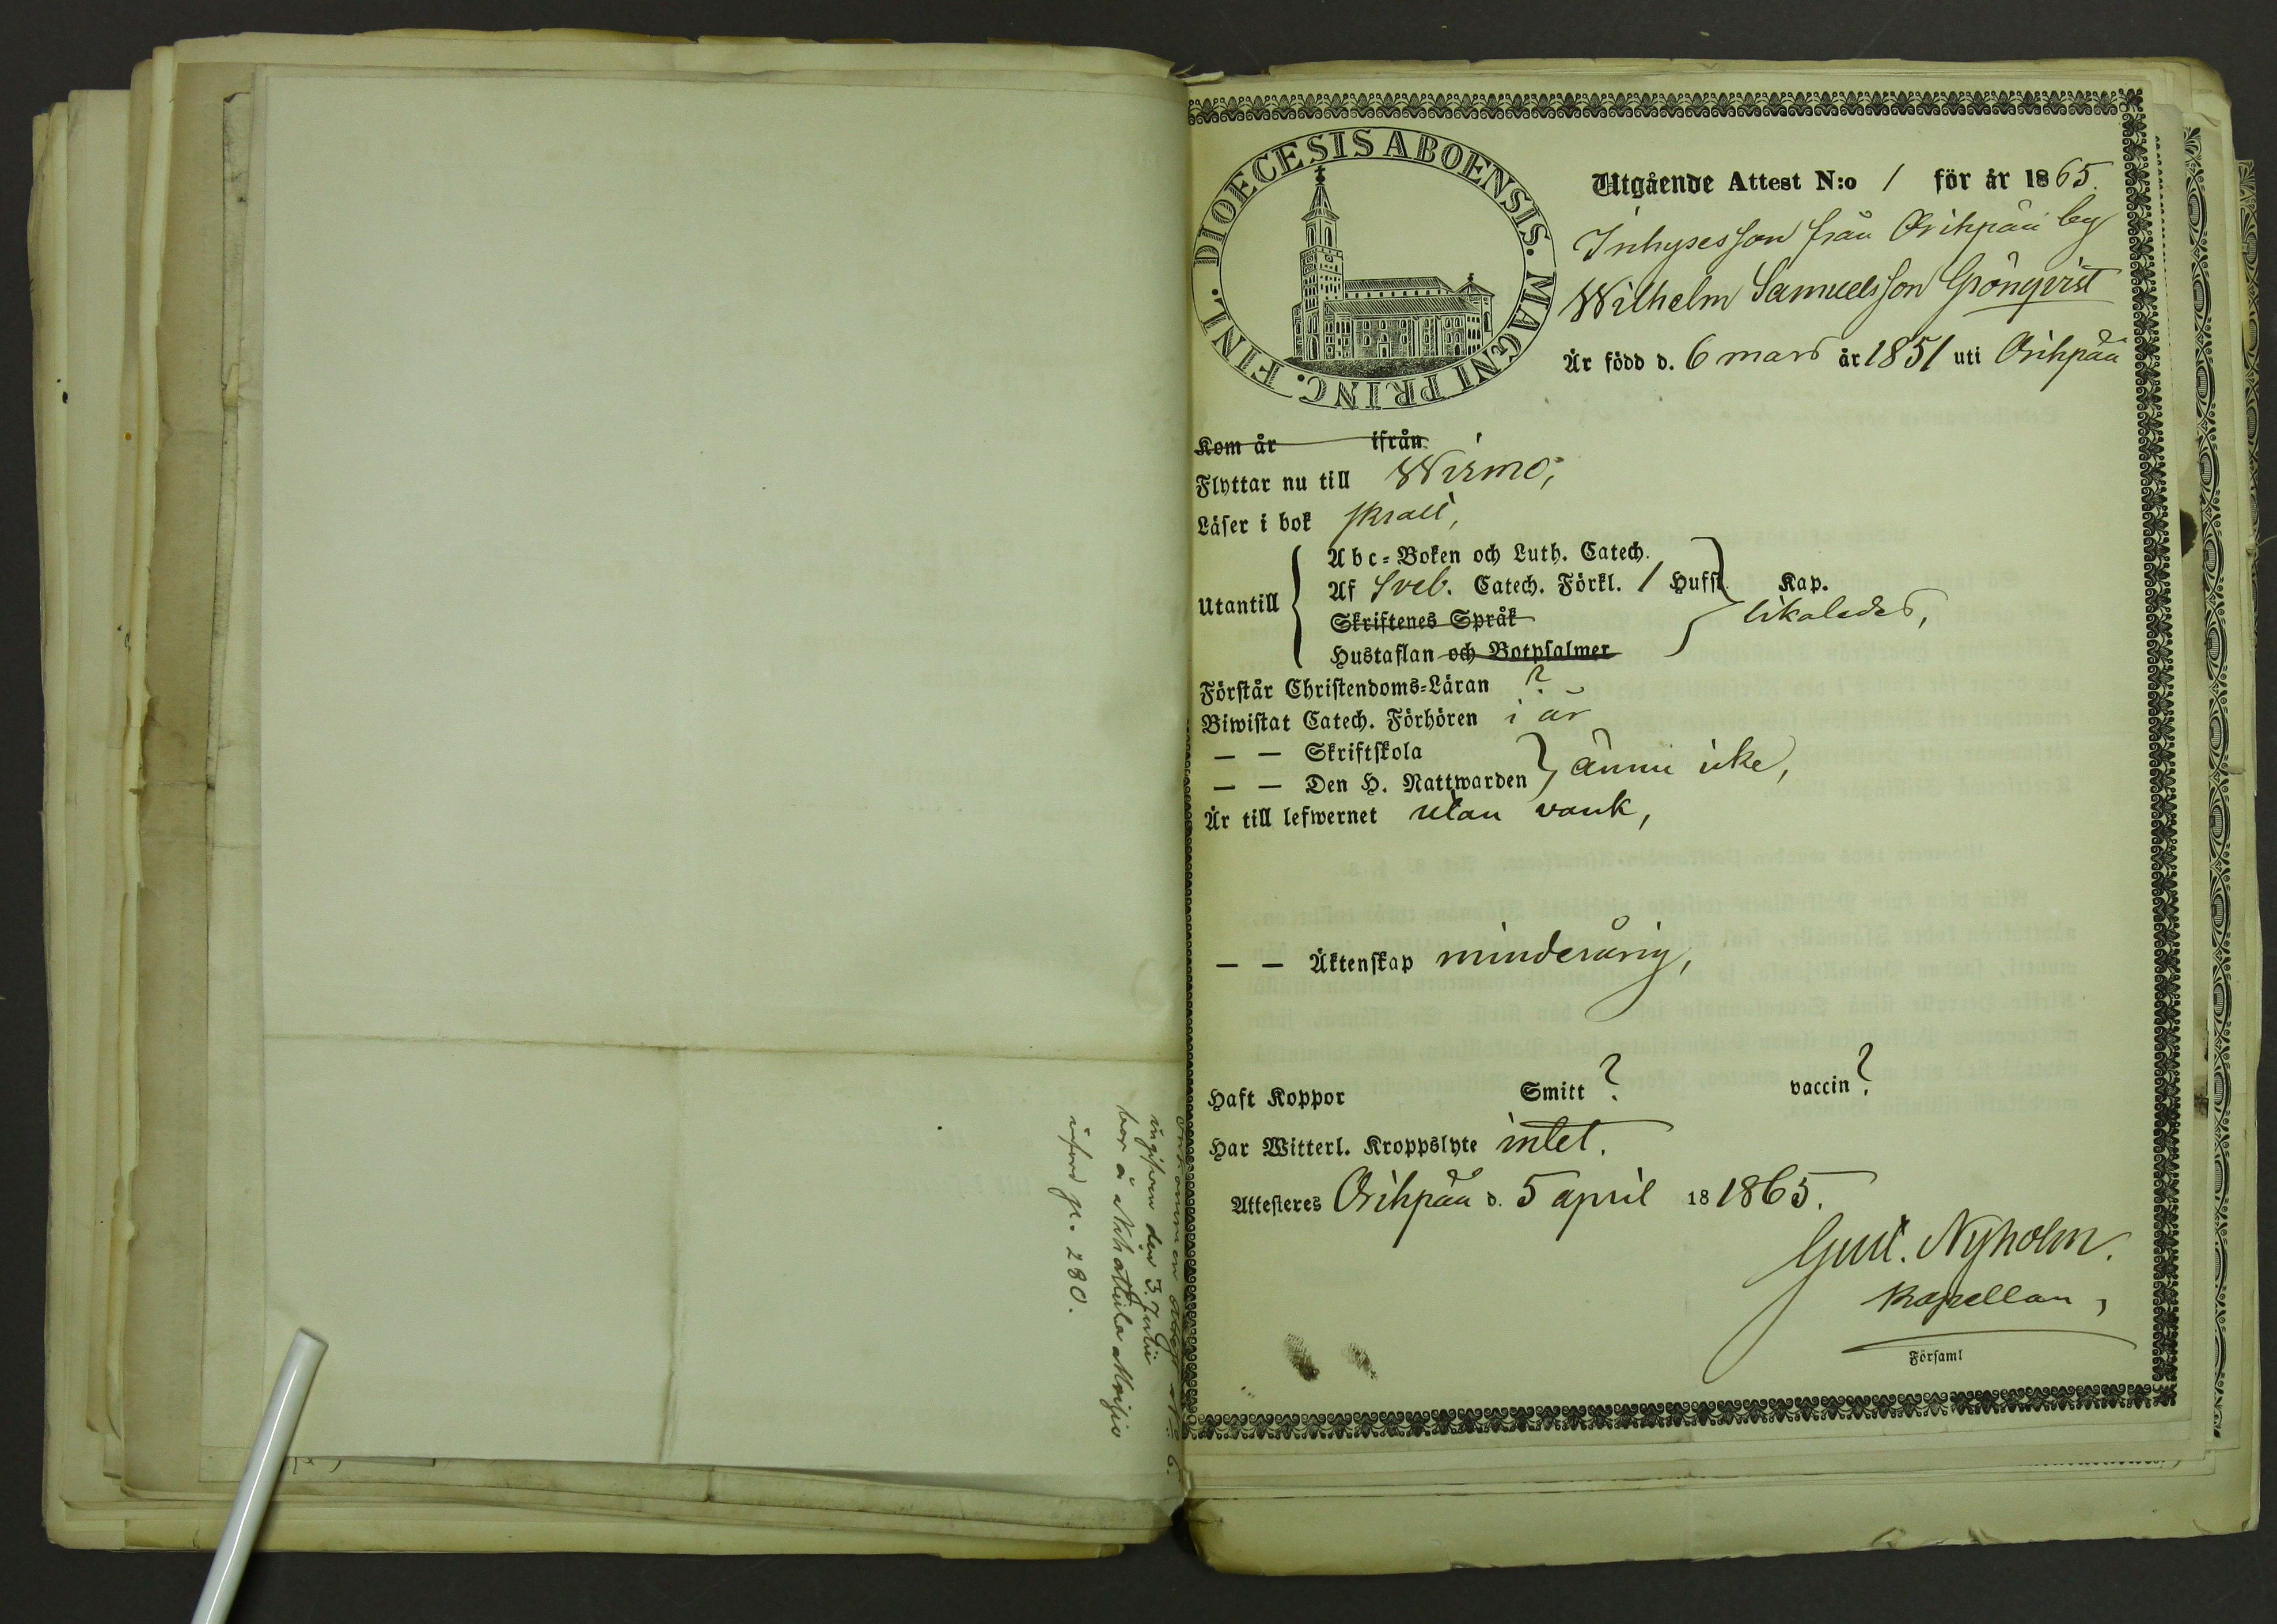 DIOECESIS ABOENSIS. MAGNI PRINC. FINL.
Utgående Attest N:o 1 för år 1865.
Inhysesson från Orihpää by
Wilhelm Samuelsson Grönqvist
Är född d. 6 mars år 1851 uti Orihpää
Kom år ifrån
Flyttar nu till Wirmo,
Läser i bok skrall,
Utantill
Abc-Boken och Luth. Catech.
Af Sveb. Catech. Förkl. 1 Hufst. Kap.
Skriftenes Språk
Hustaflan och Botpsalmer
likaledes,
Förstår Christendoms-Läran ?
Biwistat Catech. Förhören i år
— — Skriftskola
— — Den H. Nattwarden
ännu icke,
Är till lefwernet utan vank,
— — Äktenskap minderårig,
Haft Koppor Smitt ? vaccin ?
Har Witterl. Kroppslyte intet.
Attesteres Orihpää d. 5 april 18 1865.
Gust. Nyholm.
Kapellan,
Församl
ingifven den 3. Julii
bor å
införd p. 280.